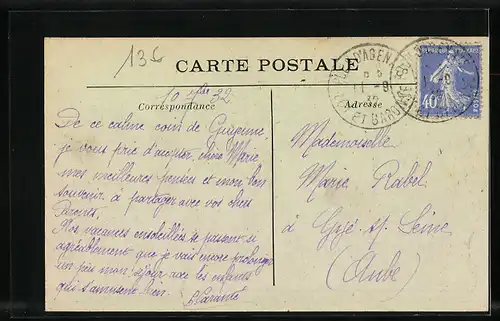 136
CARTE POSTALE
Correspondance
Adresse
10 7bre 32
De ce calme coin de Guyenne,
je vous prie d'accepter, chère Marie
mes meilleures pensées et mon bon
souvenir à partager avec vos chers
Parents,
Nos vacances ensoleillées se passent si
agréablement que je vais encore prolonger
un peu mon séjour avec les enfants
qui s'amusent bien.
Mademoiselle
Marie Rabel
à Gyé s/ Seine
(Aube)
40